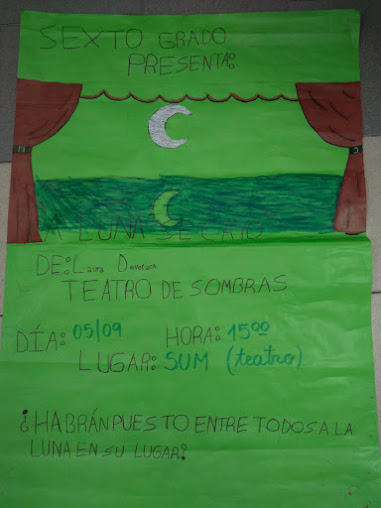 SEXTO GRADO
PRESENTA:
A LUNA SE CAYÓ
DE: Laura Devetach
TEATRO DE SOMBRAS
DÍA: 05/09 HORA: 15ºº
LUGAR: SUM (teatro)
¿HABRÁN PUESTO ENTRE TODOS A LA
LUNA EN SU LUGAR?